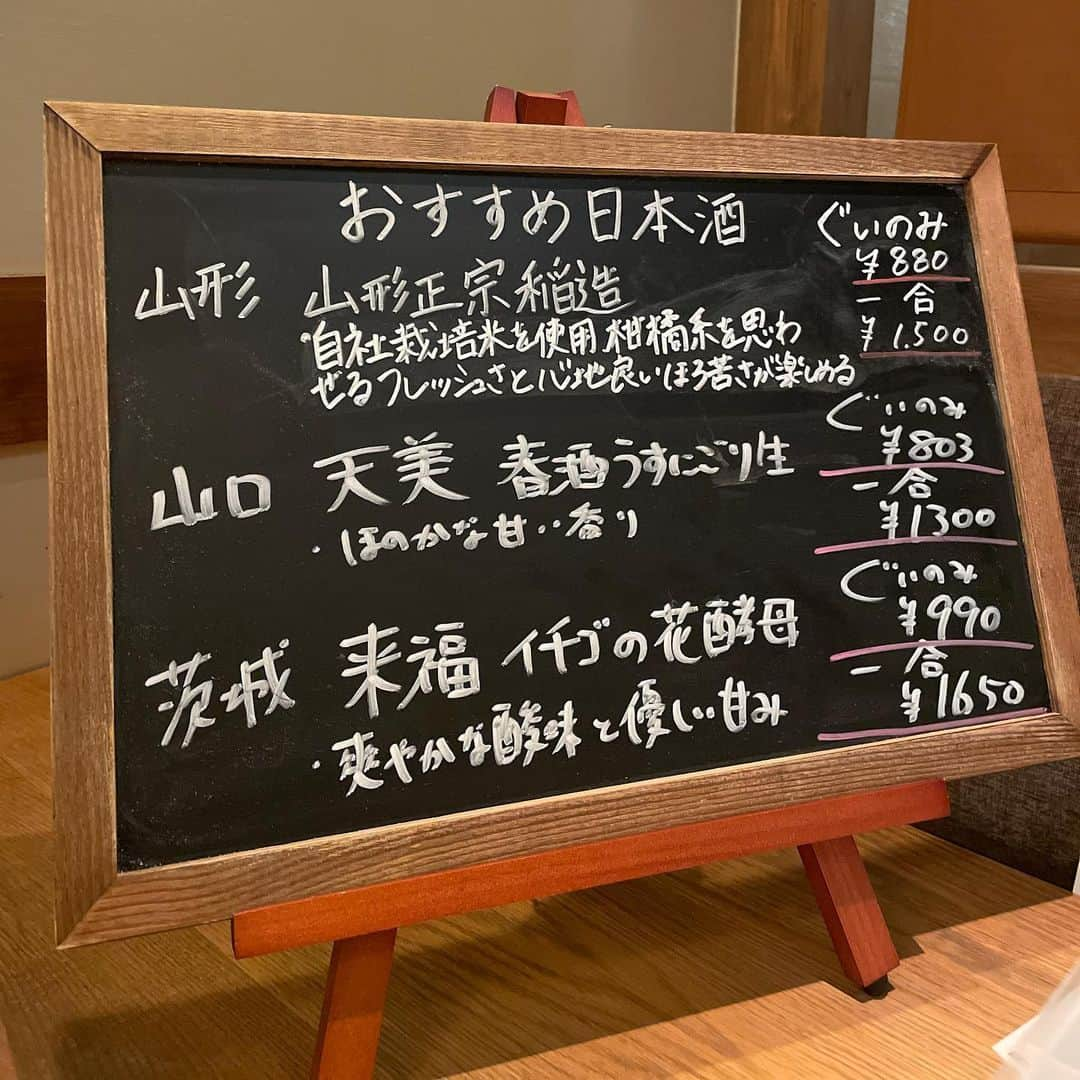 おすすめ日本酒
山形 山形正宗 稲造
・自社栽培米を使用 柑橘系を思わ
せるフレッシュさと心地良いほろ苦さが楽しめる
ぐいのみ
¥880
一合
¥1.500
山口 天美 春酒うすにごり生
・ほのかな甘い香り
ぐいのみ
¥803
一合
¥1300
茨城 来福 イチゴの花酵母
・爽やかな酸味と優しい甘み
ぐいのみ
¥990
一合
¥1650